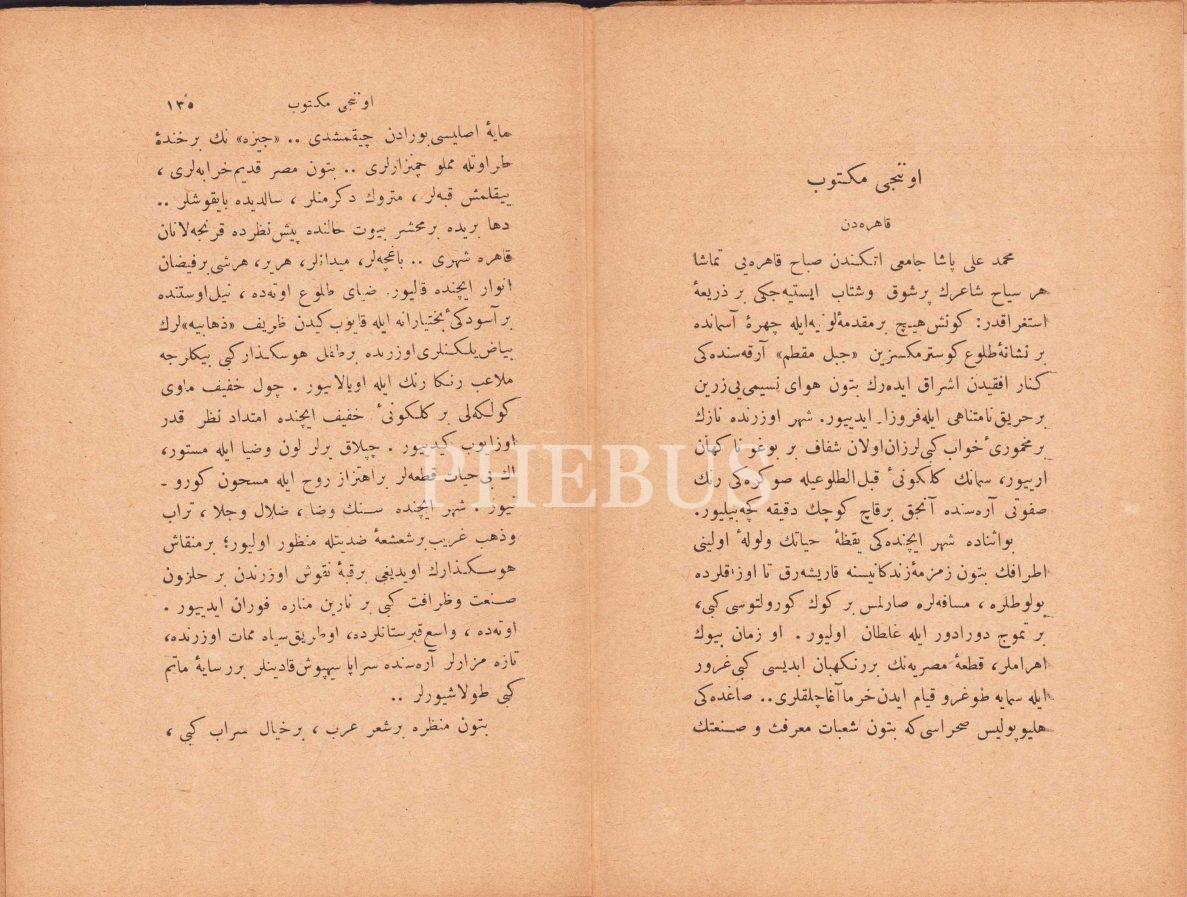 اوننجی مکتوب
قاهره‌دن
محمد علی پاشا جامعی اتکندن صباح قاهره‌یی تماشا
هر سیاح شاعرك پرشوق وشتاب ایستیه‌جکی بر ذریعهٔ
استغراقدر: کونش هیچ بر مقدمهٔ لونیه ایله چهرهٔ آسمانده
بر نشانهٔ طلوع کوسترمکسزین «جبل مقطم» آرقه‌سنده‌کی
کنار افقیدن اشراق ایده‌رك بتون هوای نسیمی‌یی زرین
بر حریق نامتناهی ایله فروزان ایدییور. شهر اوزرنده نازك
بر مخموریٔ خواب کبی لرزان اولان شفاف بر بوغو ناکهان
ارییور، سمانك کلکونیٔ قبل‌الطلوعیله صوکره‌کی رنك
صفوتی آره‌سنده آنجق برقاچ کوچك دقیقه کچه‌بیلیور.
بواثناده شهر ایچنده‌کی یقظهٔ حیاتك ولولهٔ اولینی
اطرافك بتون زمزمهٔ زندکانیسنه قاریشه‌رق تا اوزاقلرده
بولوطلره، مسافه‌لره صارلمش بر کوك کورولتوسی کبی،
بر تموج دورادور ایله غلطان اولیور. او زمان بیوك
اهراملر، قطعهٔ مصریه‌نك بررنکهبان ابدیسی کبی غرور
ایله سمایه طوغرو قیام ایدن خرما آغاچلقلری.. صاغده‌کی
هلیوپولیس صحراسی که بتون شعبات معرفت و صنعتك
اوننجی مکتوب ۱۳۵
مایهٔ اصلیسی بورادن چیقمشدی .. «جیزه» نك برخندهٔ
طراوتله مملو چمنزارلری .. بتون مصر قدیم خرابه‌لری،
ییقلمش قبه‌لر، متروك دکرمنلر، سالدیده بایقوشلر ..
دها بریده بر محشر بیوت حالنده پیش نظرده قرنجه‌لانان
قاهره شهری .. باغچه‌لر، میدانلر، هریر، هرشی برفیضان
انوار ایچنده قالیور. ضیای طلوع اوته‌ده، نیل اوستنده
بر آسودکیٔ بختیارانه ایله قایوب کیدن ظریف «ذهابیه»لرك
بیاض یلکنلری اوزرنده برطفل هوسکذار کبی بیکلرجه
ملاعب رنکارنك ایله اویالانیور. چول خفیف ماوی
کولکه‌لی بر کلکونیٔ خفیف ایچنده امتداد نظر قدر
اوزایوب کیدییور. چپلاق یرلر لون وضیا ایله مستور،
اك بی‌حیات قطعه‌لر بر اهتزاز روح ایله مسحون کورو -
نیور. شهر ایچنده سنك وضا، ضلال وجلا، تراب
وذهب غریب بر شعشعهٔ ضدیتله منظور اولیور؛ بر منقاش
هوسکذارك اویدیغی برقبهٔ نقوش اوزرندن بر حلزون
صنعت وظرافت کبی بر نارین مناره فوران ایدییور.
اوته‌ده، واسع قبرستانلرده، اوطریق سیاه ممات اوزرنده،
تازه مزارلر آره‌سنده سراپا سیهپوش قادینلر بررسایهٔ ماتم
کبی طولاشیورلر ..
بتون منظره برشعر عرب، برخیال سراب کبی،
PHEBUS